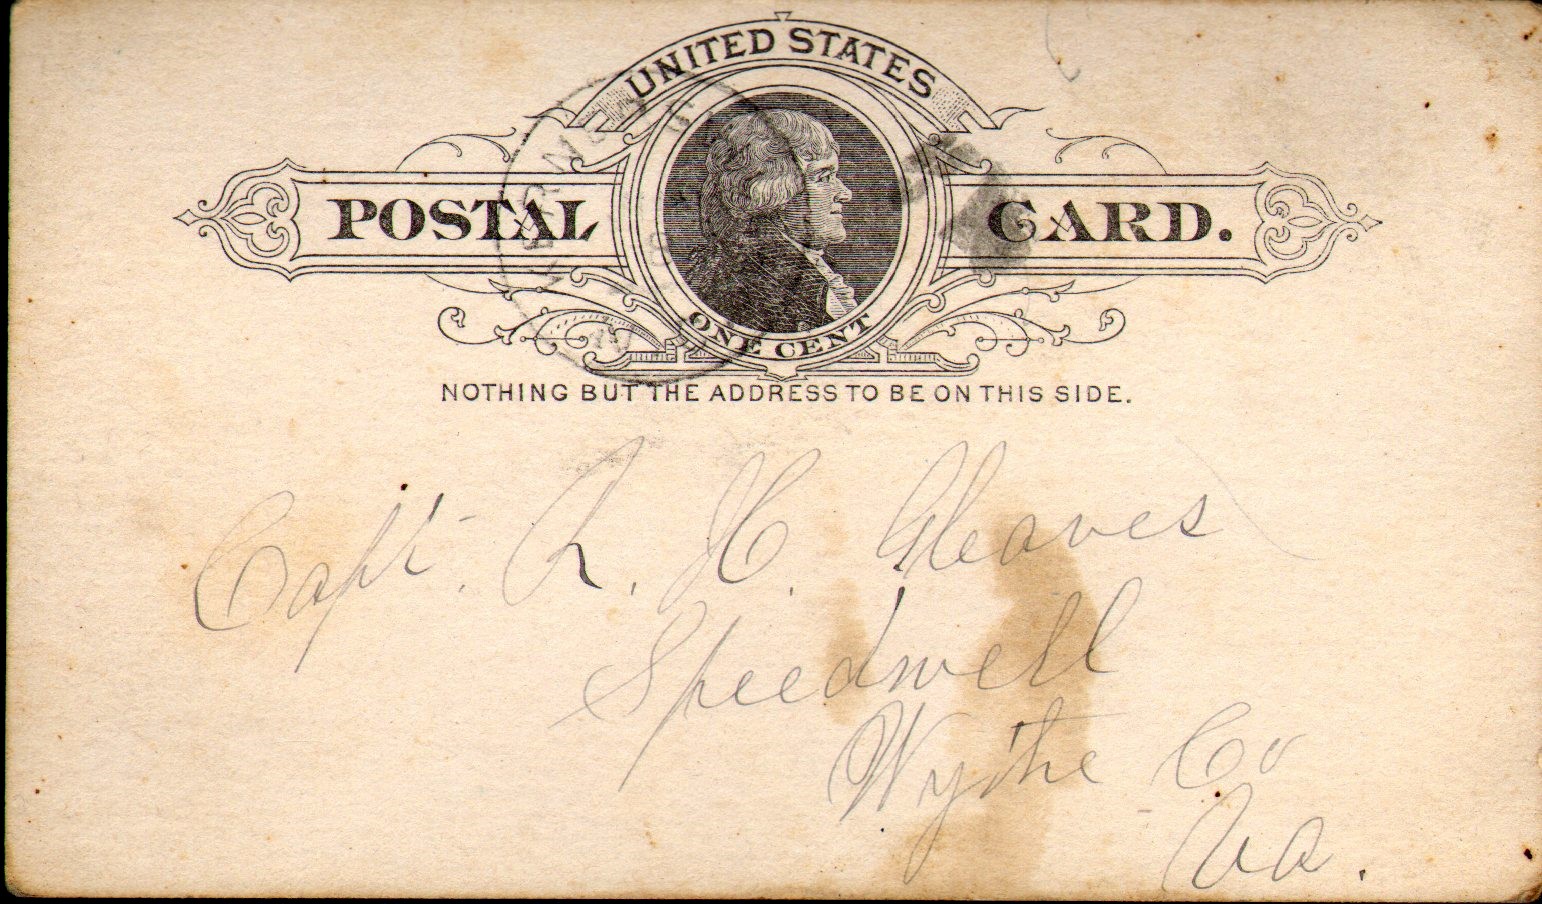 UNITED STATES
POSTAL CARD.
ONE CENT
NOTHING BUT THE ADDRESS TO BE ON THIS SIDE.
Capt. R. H. Gleaves
Speedwell
Wythe Co
Va.